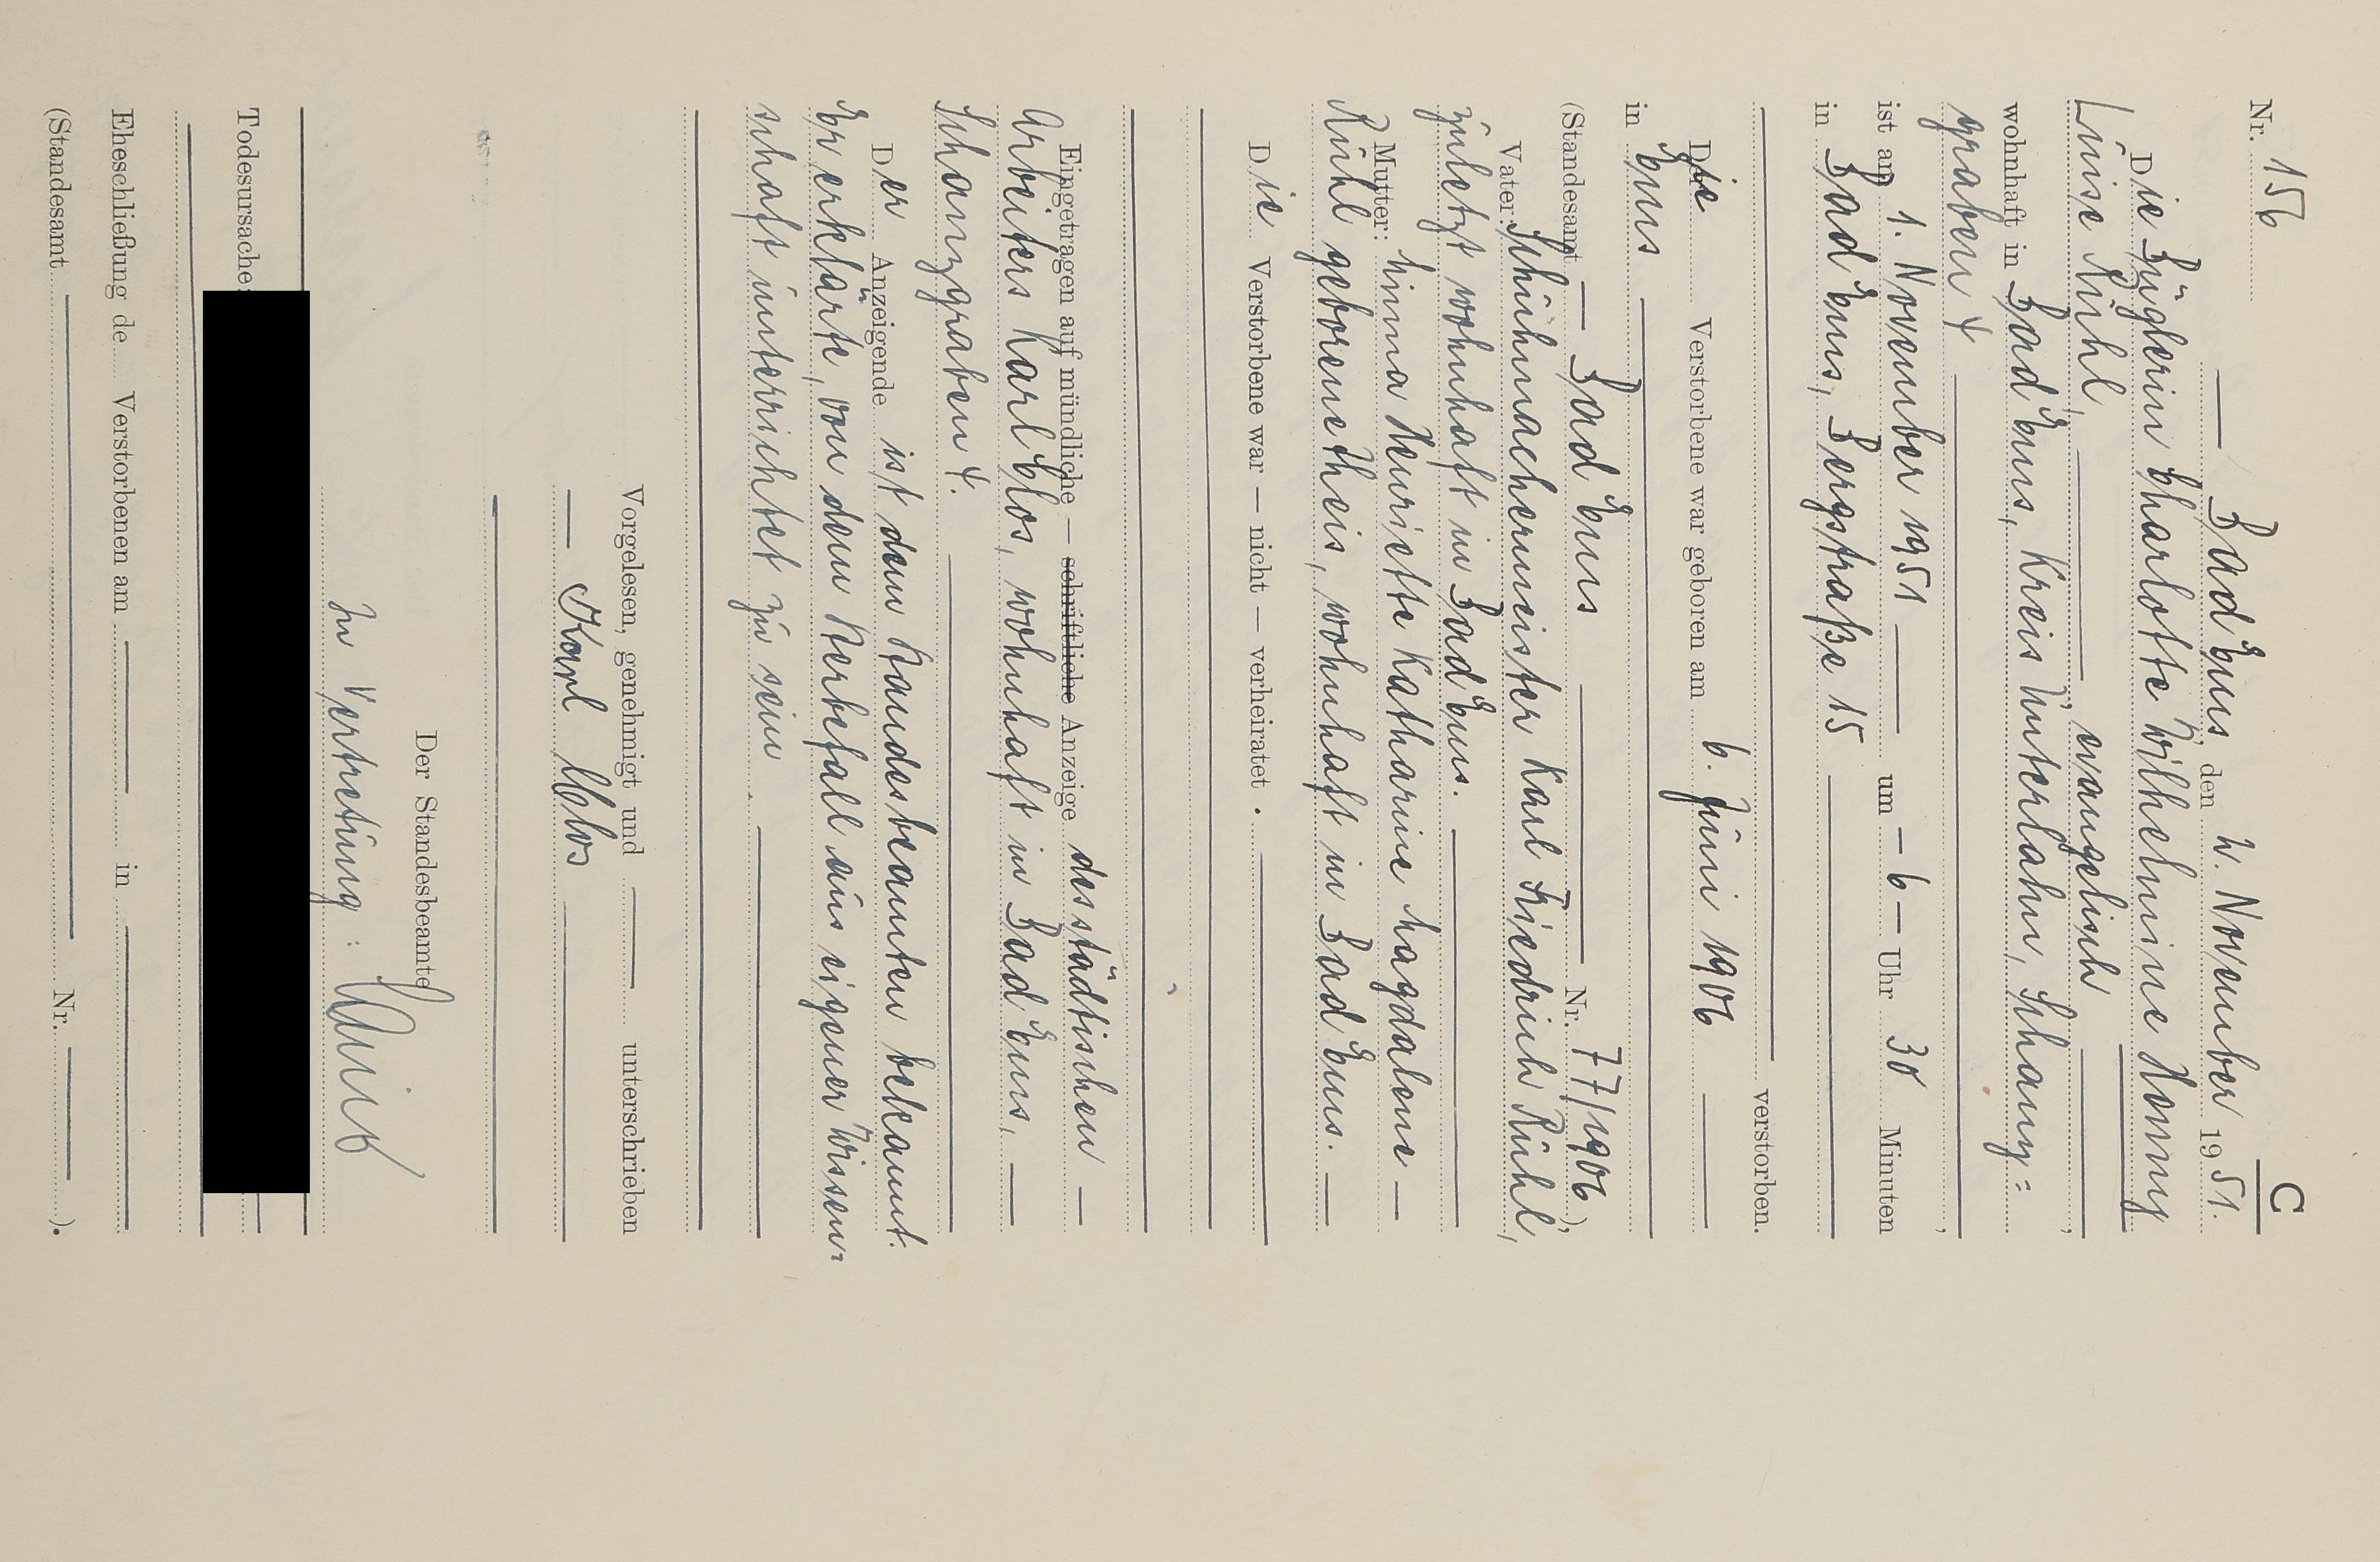 C
Nr. 156
Bad Ems, den 2. November 1951.
Die Büglerin Charlotte Wilhelmine Henny
Luise Rühl, evangelisch,
wohnhaft in Bad Ems, Kreis Unterlahn, Schanz=
graben 4,
ist am 1. November 1951 um 6 Uhr 30 Minuten
in Bad Ems, Bergstraße 15
verstorben.
Die Verstorbene war geboren am 6. Juni 1906
in Ems
(Standesamt Bad Ems Nr. 77/1906),
Vater: Schuhmachermeister Karl Friedrich Rühl,
zuletzt wohnhaft in Bad Ems.
Mutter: Minna Henriette Katharine Magdalene
Rühl geborene Theis, wohnhaft in Bad Ems.
Die Verstorbene war — nicht — verheiratet.
Eingetragen auf mündliche — schriftliche Anzeige des städtischen
Arbeiters Karl Clos, wohnhaft in Bad Ems,
Schanzgraben 4.
Der Anzeigende ist dem Standesbeamten bekannt.
Er erklärte, von dem Sterbefall aus eigener Wissen=
schaft unterrichtet zu sein.
Vorgelesen, genehmigt und unterschrieben
Karl Clos
Der Standesbeamte
In Vertretung:
Todesursache:
Eheschließung de Verstorbenen am in
(Standesamt Nr. ).